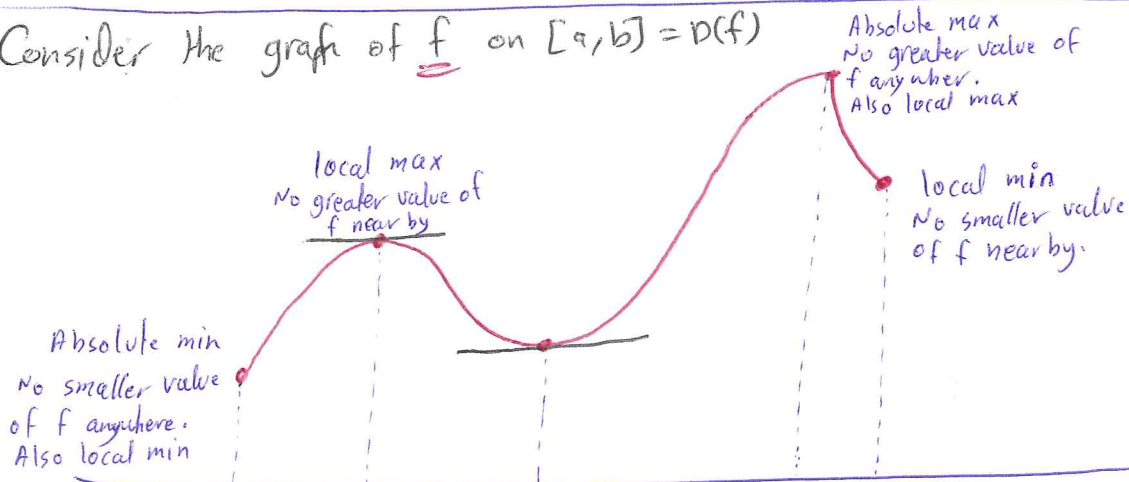 Consider the graph of f on [a,b] = D(f)
Absolute max
No greater value of
f anywher.
Also local max
local max
No greater value of
f near by
local min
No smaller value
of f near by.
Absolute min
No smaller value
of f anywhere.
Also local min